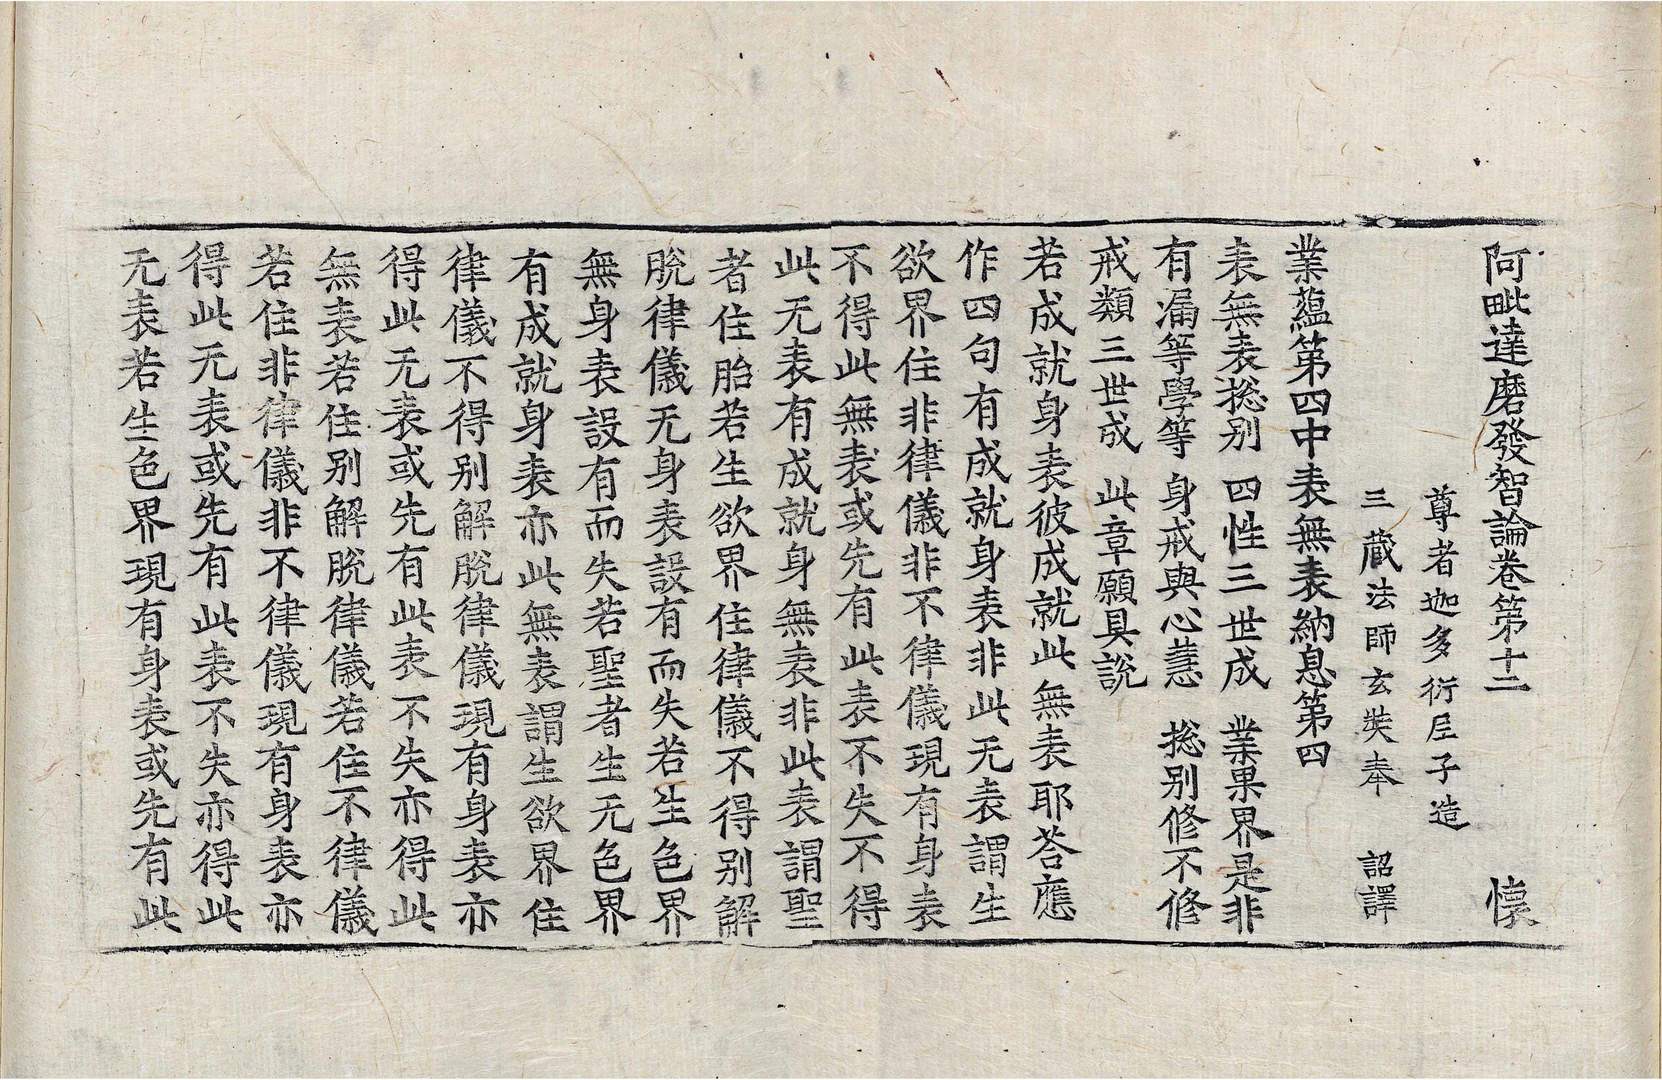 阿毗達磨發智論卷第十二 懷
尊者迦多衍尼子造
三藏法師玄奘奉 詔譯
業蘊第四中表無表納息第四
表無表捴别 四性三世成 業果界是非
有漏等學等 身戒與心慧 捴别修不修
戒類三世成 此章願具說
若成就身表彼成就此無表耶荅應
作四句有成就身表非此无表謂生
欲界住非律儀非不律儀現有身表
不得此無表或先有此表不失不得
此无表有成就身無表非此表謂聖
者住胎若生欲界住律儀不得别解
脫律儀无身表設有而失若生色界
無身表設有而失若聖者生无色界
有成就身表亦此無表謂生欲界住
律儀不得别解脫律儀現有身表亦
得此无表或先有此表不失亦得此
無表若住别解脫律儀若住不律儀
若住非律儀非不律儀現有身表亦
得此无表或先有此表不失亦得此
无表若生色界現有身表或先有此